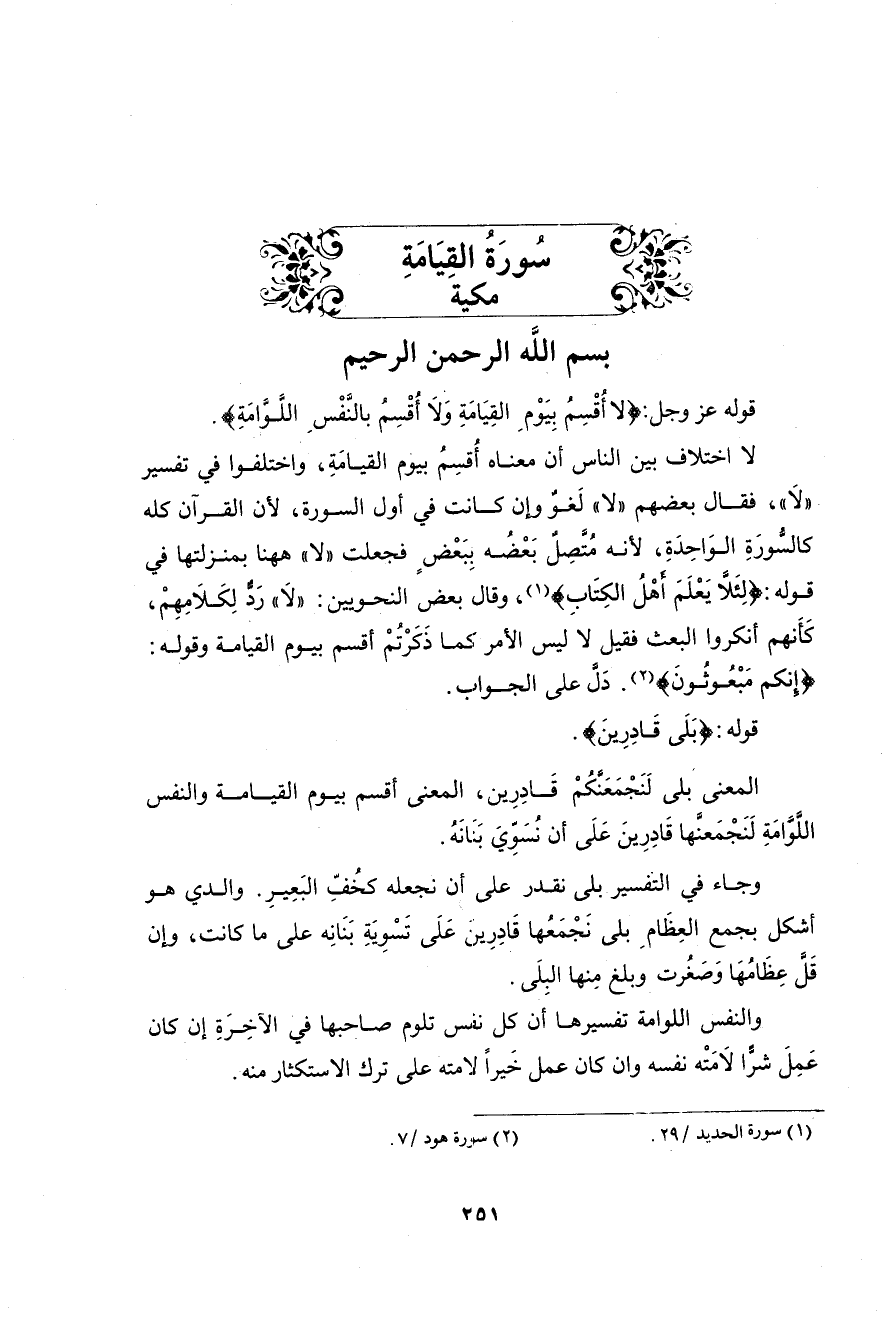 سُورَةُ القِيَامَةِ
مكية
بسم اللَّه الرحمن الرحيم
قوله عز وجل: ﴿لا أُقْسِمُ بِيَوْمِ القِيَامَةِ وَلَا أُقْسِمُ بالنَّفْسِ اللَّوَّامَةِ﴾.
لا اختلاف بين الناس أن معناه أُقسِمُ بيوم القيامَةِ، واختلفوا في تفسير
«لَا»، فقال بعضهم «لا» لَغوٌ وإن كانت في أول السورة، لأن القرآن كله
كالسُّورَةِ الوَاحِدَةِ، لأنه مُتَّصِلٌ بَعْضُه بِبَعْضٍ فجعلت «لا» ههنا بمنزلتها في
قوله: ﴿لِئَلَّا يَعْلَمَ أَهْلُ الكِتَابِ﴾(١)، وقال بعض النحويين: «لَا» رَدٌّ لِكَلَامِهِمْ،
كَأَنهم أنكروا البعث فقيل لا ليس الأمر كما ذَكَرْتُمْ أقسم بيوم القيامة وقوله:
﴿إنكم مَبْعُوثُونَ﴾(٢). دَلَّ على الجواب.
قوله: ﴿بَلَى قَادِرِينَ﴾.
المعنى بلى لَنَجْمَعَنَّكُمْ قَادِرِين، المعنى أقسم بيوم القيامة والنفس
اللَّوَّامَةِ لَنَجْمَعنَّها قَادِرِينَ عَلَى أن نُسَوِّيَ بَنَانَهُ.
وجاء في التفسير بلى نقدر على أن نجعله كخُفِّ البَعِيرِ. والدي هو
أشكل بجمع العِظَامِ بلى نَجْمَعُها قَادِرِينَ عَلَى تَسْوِيَةِ بَنَانِه على ما كانت، وإن
قَلَّ عِظَامُهَا وَصَغُرت وبلغ مِنها البِلَى.
والنفس اللوامة تفسيرها أن كل نفس تلوم صاحبها في الآخِرَةِ إن كان
عَمِلَ شرًّا لَامَتْه نفسه وان كان عمل خَيراً لامته على ترك الاستكثار منه.
(١) سورة الحديد /٢٩.
(٢) سورة هود /٧.
٢٥١